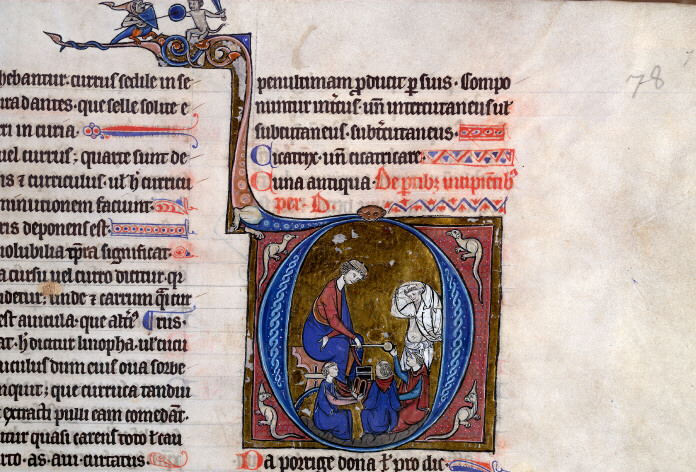 hebantur. currus sedile in se
ura dantes. que selle solute e
ri in curia.
uel currus; quarte sunt de
is ⁊ curriculus. ul' h' curricu
minutionem faciunt.
ris deponens est.
uolubilia tp̄ra significat.
a cursu uel curro dicitur.
idetur; unde ⁊ carrum q̄ cur
est auicula. que
at. h' dicitur linopha. ul'
uculus dum eius oua sorbe
nquit; que curruca tandiu
extracti pulli eam comedāt.
itur quasi carens toto ł cau
urto. as. aui. curtatus.
penultimam ꝓducit ꝑ suis. Compo
nuntur int̄cus. un̄ intercutaneus ul'
subcutaneus. subt̄cutaneus.
Cicatrix. un̄ cicatricare.
Cuna antiqua. De ꝑtibꝫ incipientibꝫ
per. D.
Da porrige dona ł pro dic.
78